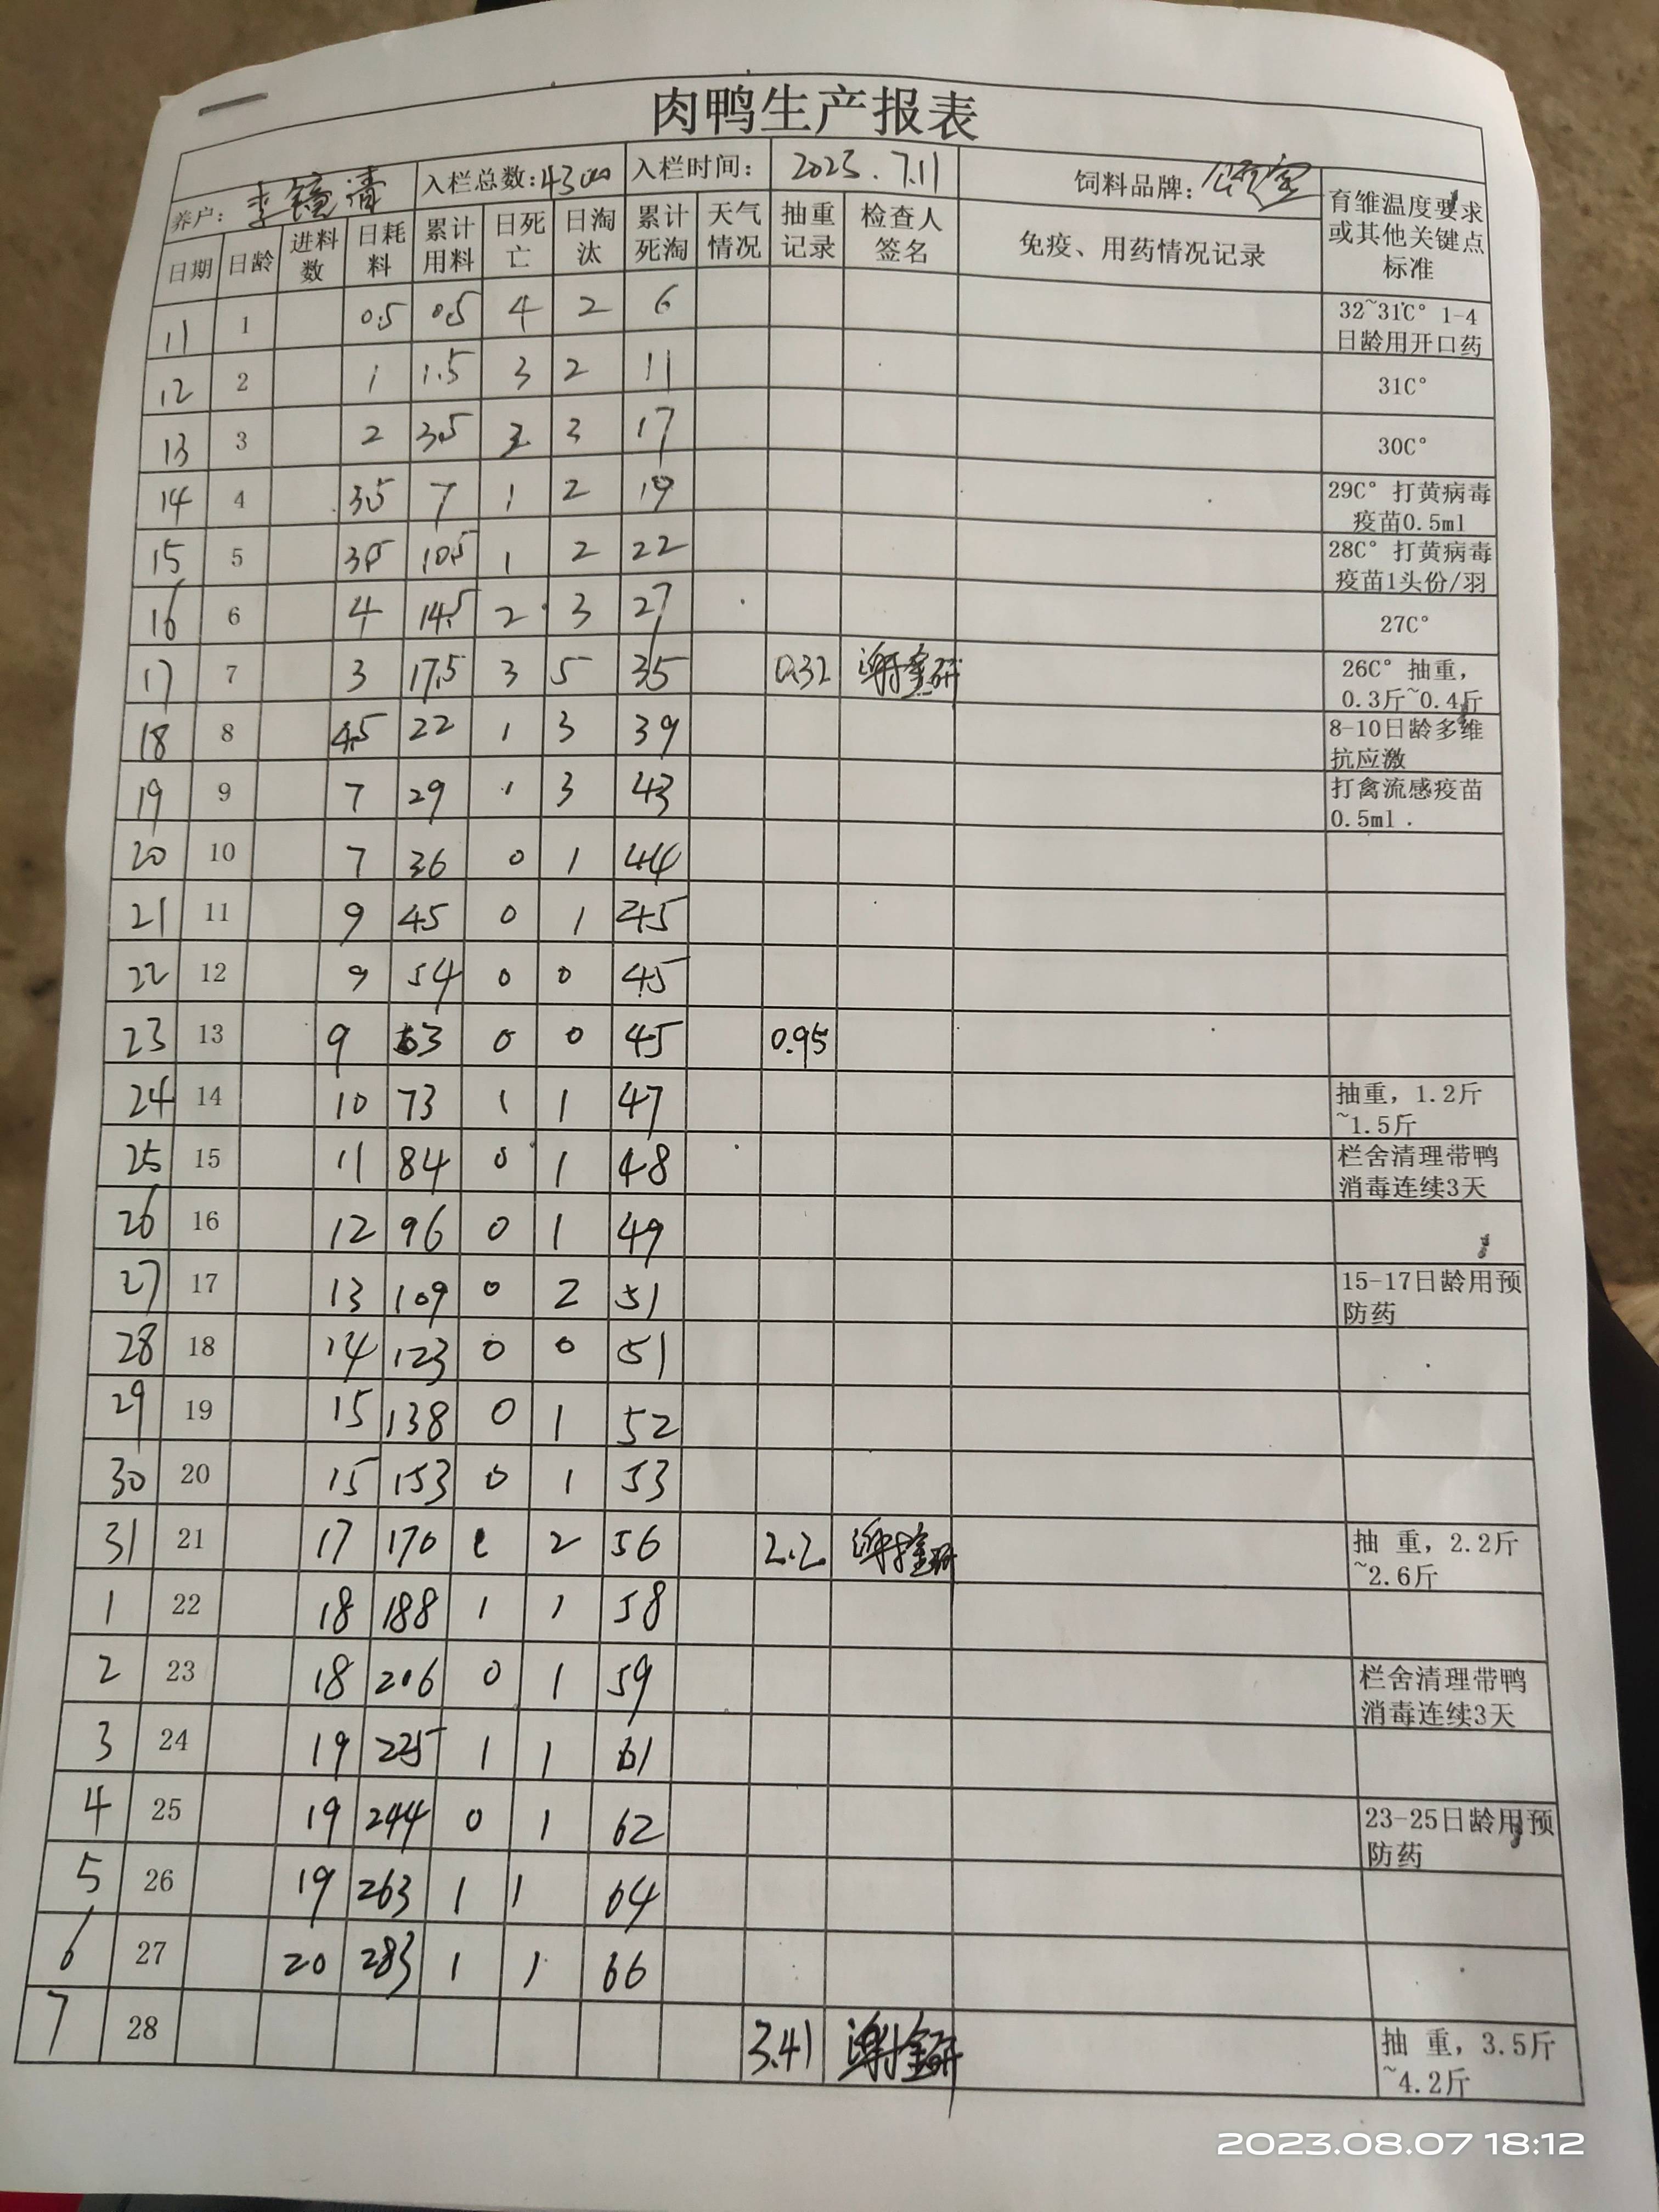 肉鸭生产报表
养户: 李 清 入栏总数:4300 入栏时间: 2023.7.11 饲料品牌:
日期 日龄 进料数 日耗料 累计用料 日死亡 日淘汰 累计死淘 天气情况 抽重记录 检查人签名 免疫、用药情况记录 育雏温度要求或其他关键点标准
11 1 0.5 0.5 4 2 6 32~31C° 1-4日龄用开口药
12 2 1 1.5 3 2 11 31C°
13 3 2 3.5 3 3 17 30C°
14 4 3.5 7 1 2 19 29C° 打黄病毒疫苗0.5ml
15 5 3.5 10.5 1 2 22 28C° 打黄病毒疫苗1头份/羽
16 6 4 14.5 2 3 27 27C°
17 7 3 17.5 3 5 35 0.32 26C° 抽重，0.3斤~0.4斤
18 8 4.5 22 1 3 39 8-10日龄多维抗应激
19 9 7 29 1 3 43 打禽流感疫苗0.5ml
20 10 7 36 0 1 44
21 11 9 45 0 1 45
22 12 9 54 0 0 45
23 13 9 63 0 0 45 0.95
24 14 10 73 1 1 47 抽重，1.2斤~1.5斤
25 15 11 84 0 1 48 栏舍清理带鸭消毒连续3天
26 16 12 96 0 1 49
27 17 13 109 0 2 51 15-17日龄用预防药
28 18 14 123 0 0 51
29 19 15 138 0 1 52
30 20 15 153 0 1 53
31 21 17 170 1 2 56 2.2 抽 重，2.2斤~2.6斤
1 22 18 188 1 1 58
2 23 18 206 0 1 59 栏舍清理带鸭消毒连续3天
3 24 19 225 1 1 61
4 25 19 244 0 1 62 23-25日龄用预防药
5 26 19 263 1 1 64
6 27 20 283 1 1 66
7 28 3.41 抽 重，3.5斤~4.2斤
2023.08.07 18:12